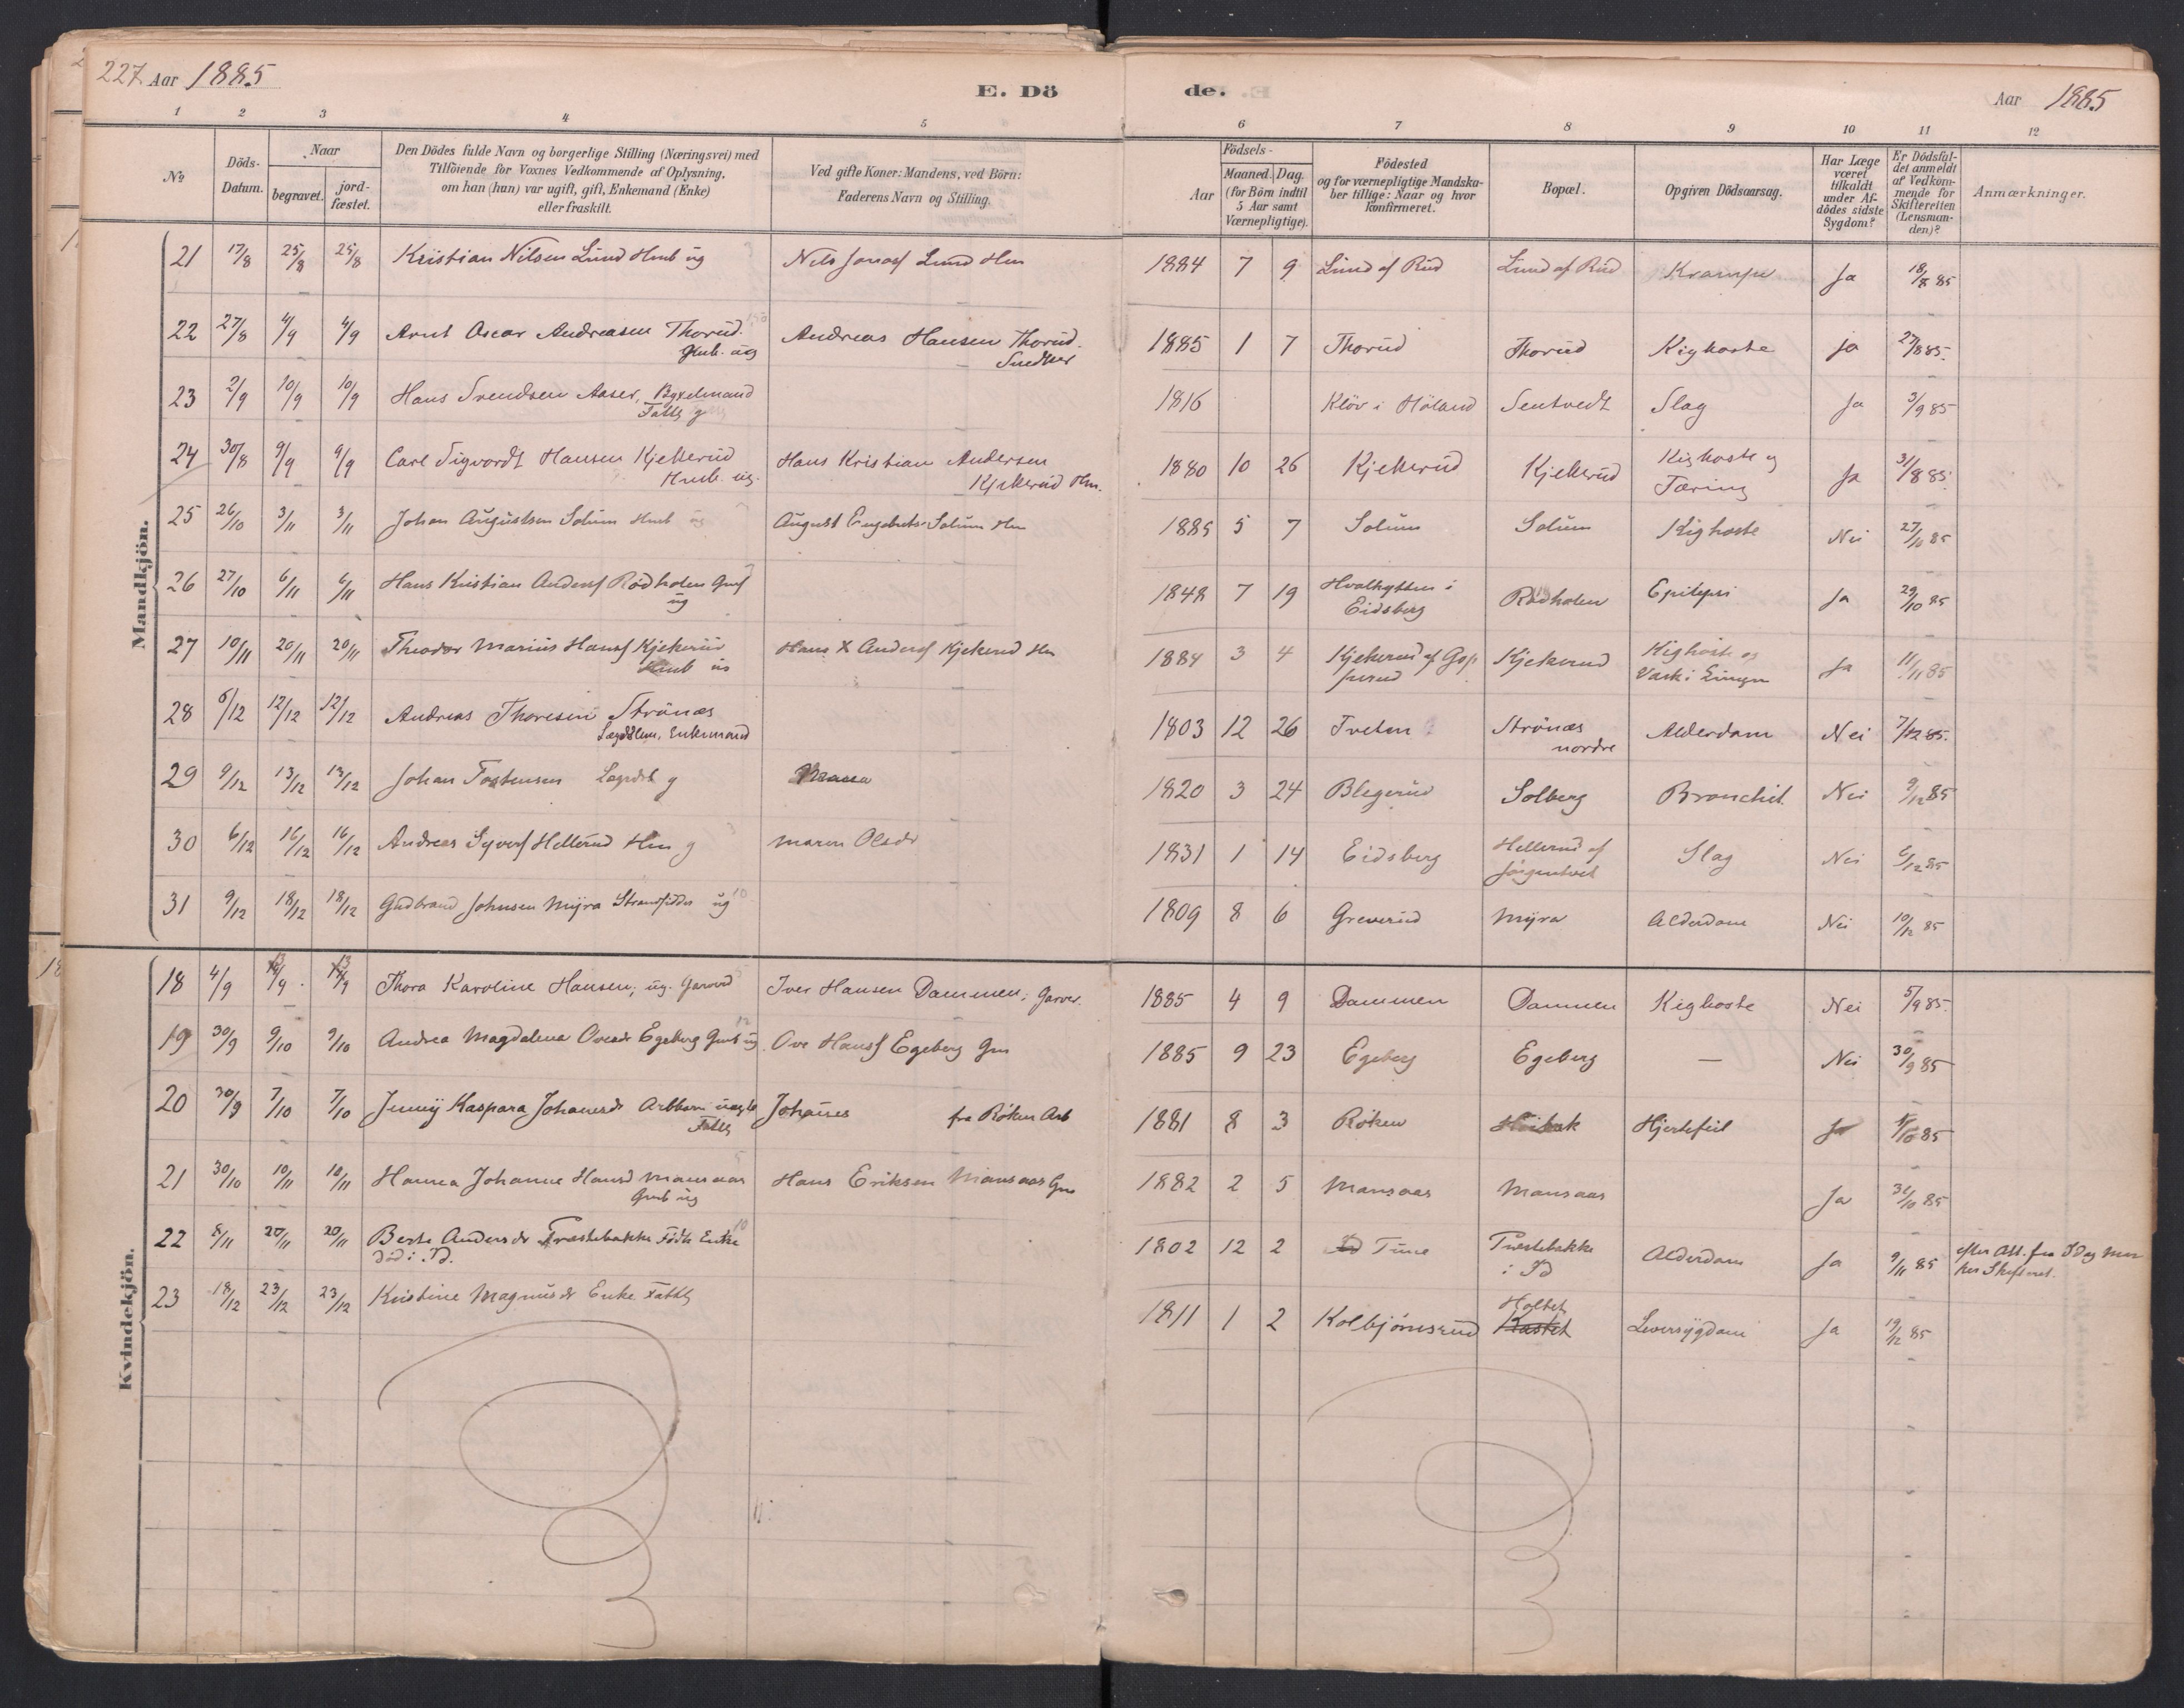 227 Aar 1885
E. Dö de.
Aar 1885
1 2 3 4 5 6 7 8 9 10 11 12
No
Döds-Datum.
Naar
begravet.
jordfæstet.
Den Dödes fulde Navn og borgerlige Stilling (Næringsvei) med
Tilföiende for Voxnes Vedkommende af Oplysning,
om han (han) var ugift, gift, Enkemand (Enke)
eller fraskilt.
Ved gifte Koner: Mandens, ved Börn:
Faderens Navn og Stilling.
Födsels-
Aar
Maaned. Dag.
(for Börn indtil
5 Aar samt
Værnepligtige).
Födested
og for værnepligtige Mandska-
ber tillige: Naar og hvor
konfirmeret.
Bopæl.
Opgiven Dödsaarsag.
Har Læge
været
tilkaldt
under Af-
dödes sidste
Sygdom?
Er Dödsfal-
det anmeldt
af Vedkom-
mende for
Skifteretten
(Lensman-
den)?
Anmærkninger.
Mandkjön.
21 17/8 25/8 25/8 Kristian Nilsen Lund Hmb ug Nils Jonass Lund Hm 1884 7 9 Lund af Rud Lund af Rud Krampe Ja 18/8 85
22 27/8 4/9 4/9 Arnt Oscar Andreasen Thorud. Andreas Hansen Thorud. 1885 1 7 Thorud Thorud Kighoste Ja 27/8 85.
Gmb. ug Snedker
23 2/9 10/9 10/9 Hans Svendsen Aaser, Byxelmand 1816 Klöv i Höland Sentvedt Slag Ja 3/9 85
Fattg g
24 30/8 9/9 9/9 Carl Sigvardt Hansen Kjekerud Hans Kristian Andersen 1880 10 26 Kjekerud Kjekerud Kighoste og Ja 31/8 85.
Hmb. ug. Kjekerud Hm. Tæring
25 26/10 3/11 3/11 Johan Augustsen Solum Hmb ug August Engebrets Solum Hm 1885 5 7 Solum Solum Kighoste Nei 27/10 85
26 27/10 6/11 6/11 Hans Kristian Anderss Rödholen 1848 7 19 Hvalhytten i Rödholen Epilepsi Ja 29/10 85
ug Eidsberg
27 10/11 20/11 20/11 Theodor Marius Hanss Kjekerud Hans K Anderss Kjekerud Hm 1884 3 4 Kjekerud af Kjekerud Kighoste og Ja 11/11 85
Hmb ug
28 6/12 12/12 12/12 Andreas Thoresen Strönæs 1803 12 26 Tveten Strönæs Alderdom Nei 7/12 85.
Enkemand nordre
29 9/12 13/12 13/12 Johan Tostensen g 1820 3 24 Blegerud Solberg Bronchit. Nei 9/12 85
30 6/12 16/12 16/12 Andreas Syverss Hellerud Hm g Maren Olsdr 1831 1 14 Eidsberg Hellerud af Slag Nei 6/12 85
Jörgentvet
31 9/12 18/12 18/12 Gudbrand Johnsen Myra Strandsidder ug 1809 8 6 Greverud Myra Alderdom Nei 10/12 85
Kvindekjön.
18 4/9 13/9 13/9 Thora Karoline Hansen; ug. Iver Hansen Dammen; Garver. 1885 4 9 Dammen Dammen Kighoste Nei 5/9 85.
19 30/9 9/10 9/10 Andrea Magdalena Ovesdr Egeberg Gmb ug Ove Hanss Egeberg Gm 1885 9 23 Egeberg Egeberg — Nei 30/9 85
20 30/9 7/10 7/10 Jenny Kaspara Johanesdr Arbbarn Johanes fra Röken Arb 1881 8 3 Röken Hjertefeil Ja 1/10 85
Fattg
21 30/10 10/11 10/11 Hanna Johanne Hansd Mansaas Hans Eriksen Mansaas Gm 1882 2 5 Mansaas Mansaas Ja 31/10 85
Gmb ug
22 8/11 20/11 20/11 Berte Andersdr Præstebakke Födr Enke 1802 12 2 Tune Præstebakke Alderdom Ja 9/11 85 efter Att. fra Id og Mar
död i Id. i Id kers Skifteret.
23 18/12 23/12 23/12 Kristine Magnusdr Enke Fattg 1811 1 2 Kolbjörnsrud Holtet Leversygdom Ja 19/12 85